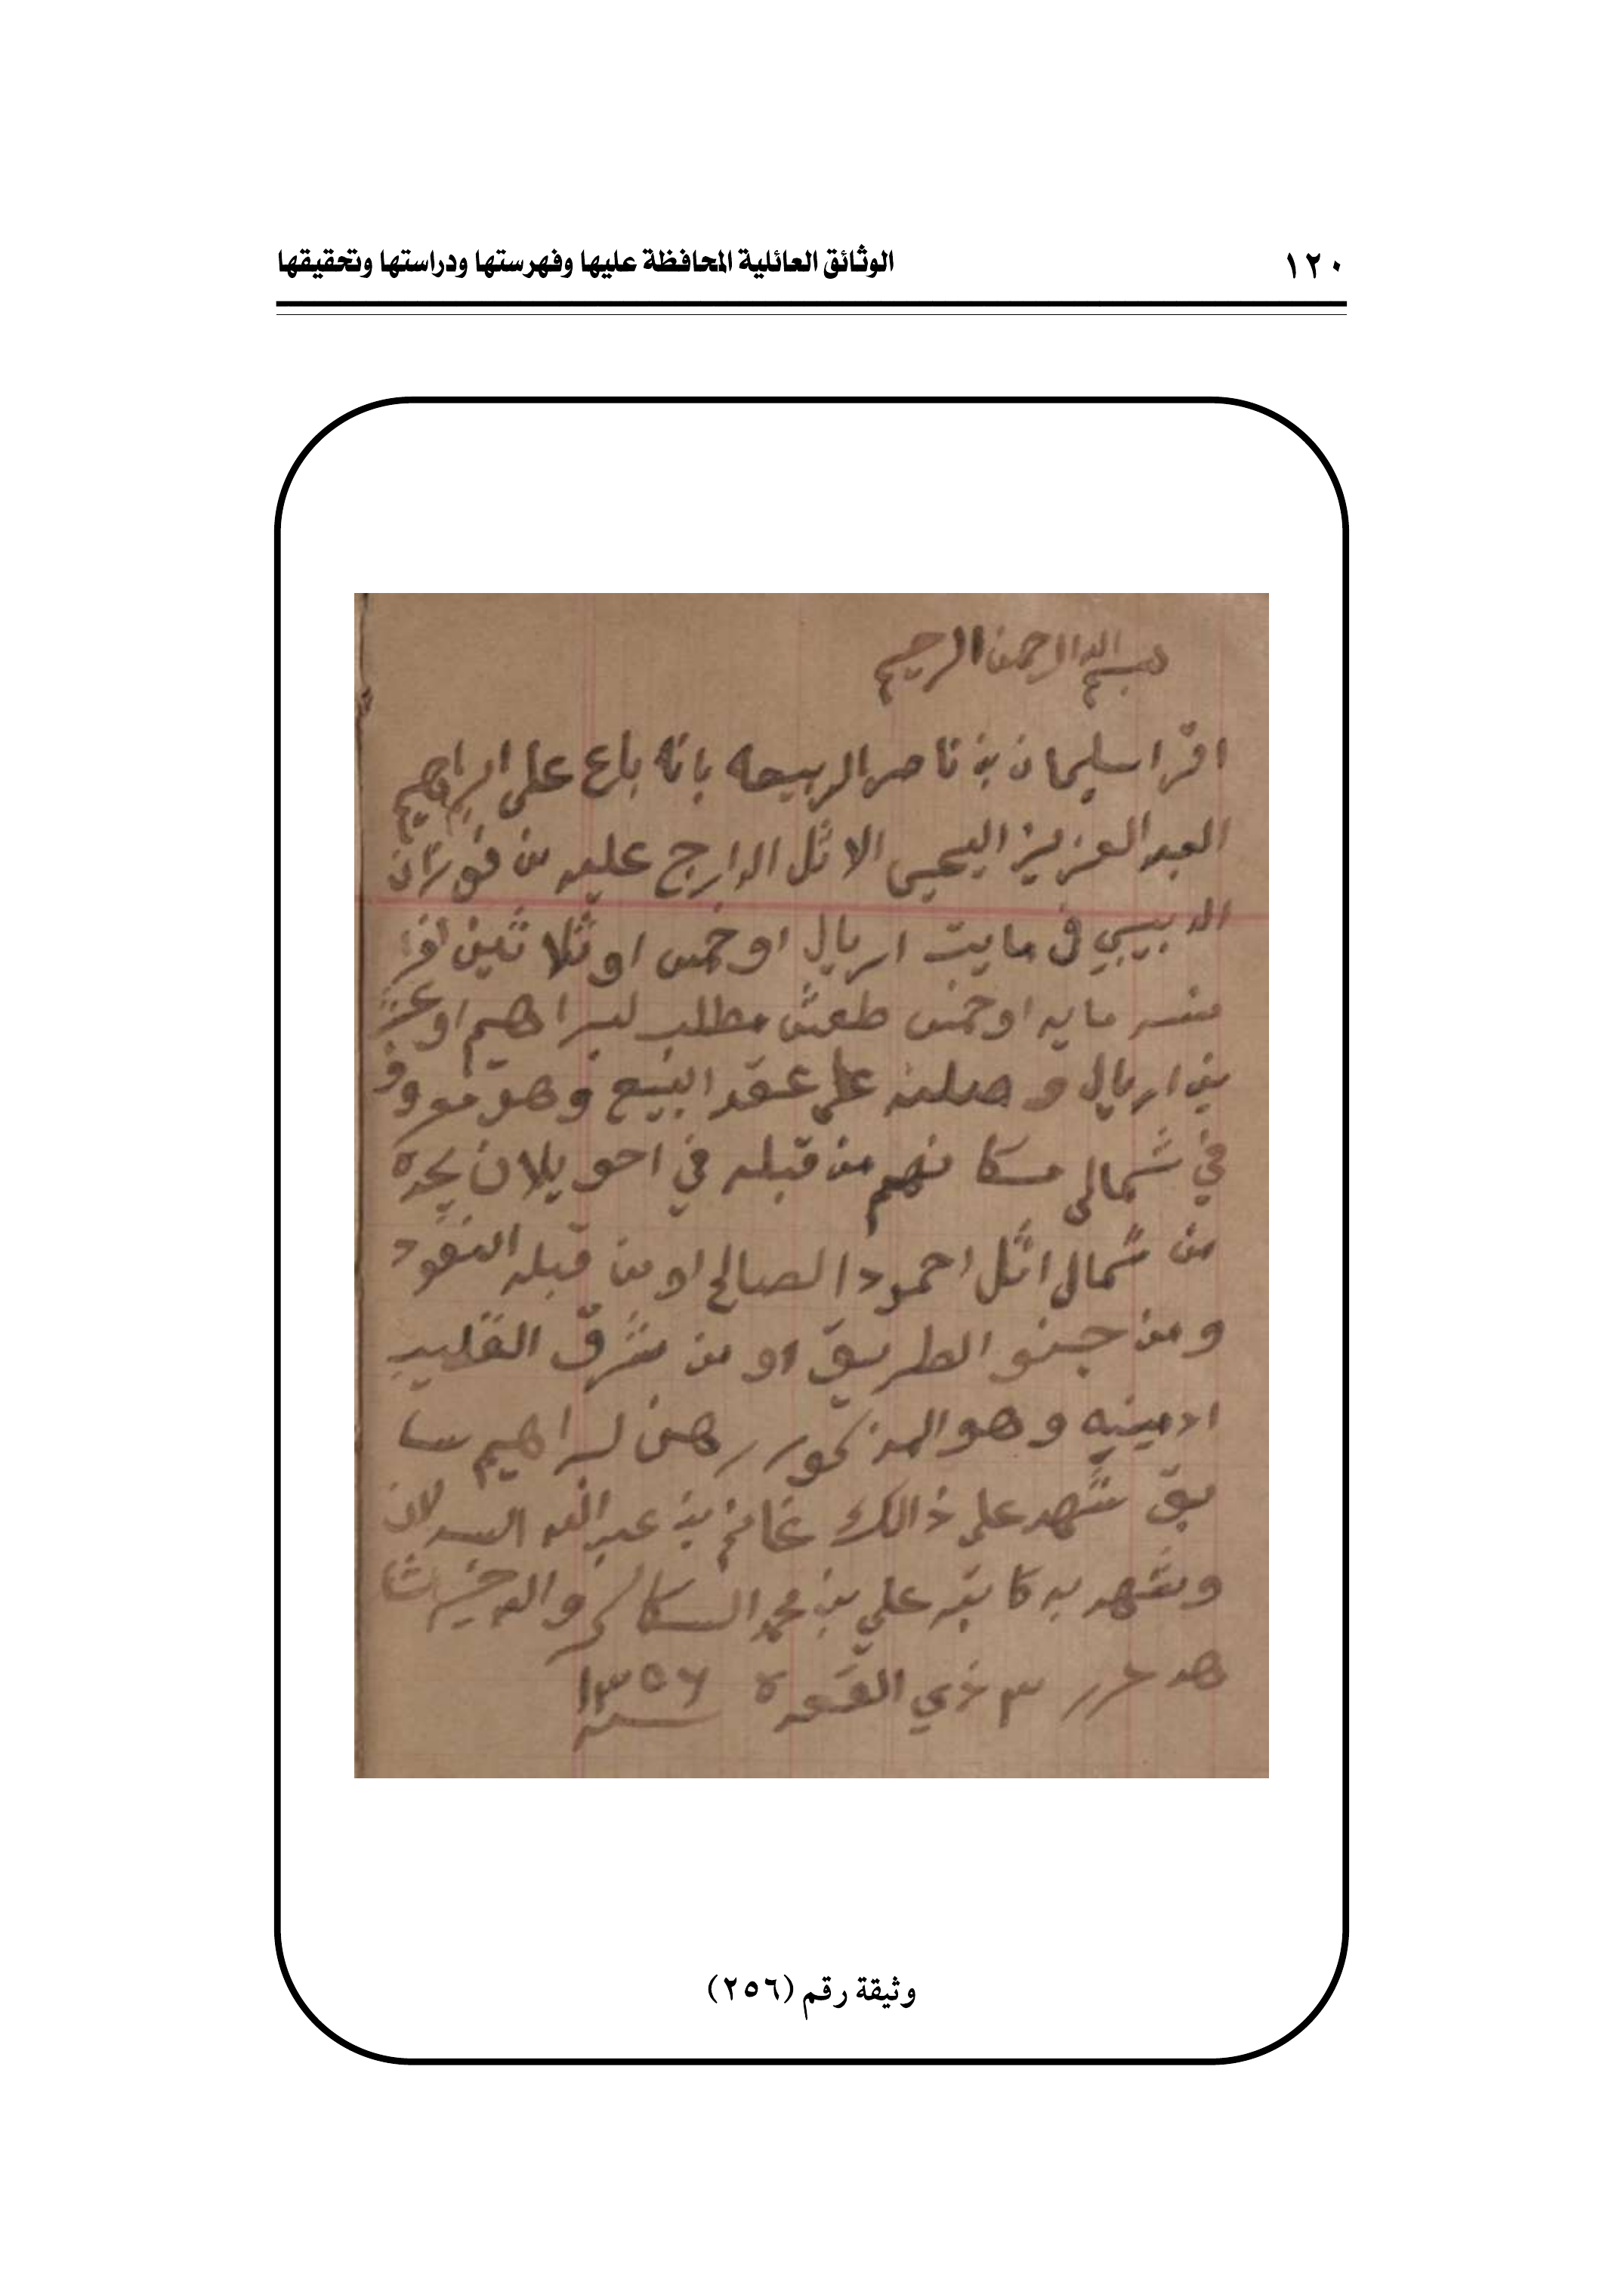 ١٢٠
الوثائق العائلية المحافظة عليها وفهرستها ودراستها وتحقيقها
بسم الله الرحمن الرحيم
اقرا سليمان بن ناصر الربيعه بانه باع على ابراهيم
العبد العزيز اليحيى الاثل الدارج عليه من فوزان
الدبيبي في مايت اريال اوخمس اوثلاثين
مايه اوخمس طعش مطلب لبراهيم
اريال وصلنه على عقد البيع وهو
في شمالي مكانهم من قبله في احويلان يحده
من شمال اثل احمود الصالح او من قبله النفود
ومن جنو الطريق او من شرق القليب
وهو المذكور رهن لبراهيم سا
بق شهد على ذالك غانم بن عبد الله
وشهد به كاتبه علي بن محمد السكاكر والله خير شا
هد حرر ٣ ذي القعدة ١٣٥٦
وثيقة رقم (٢٥٦)